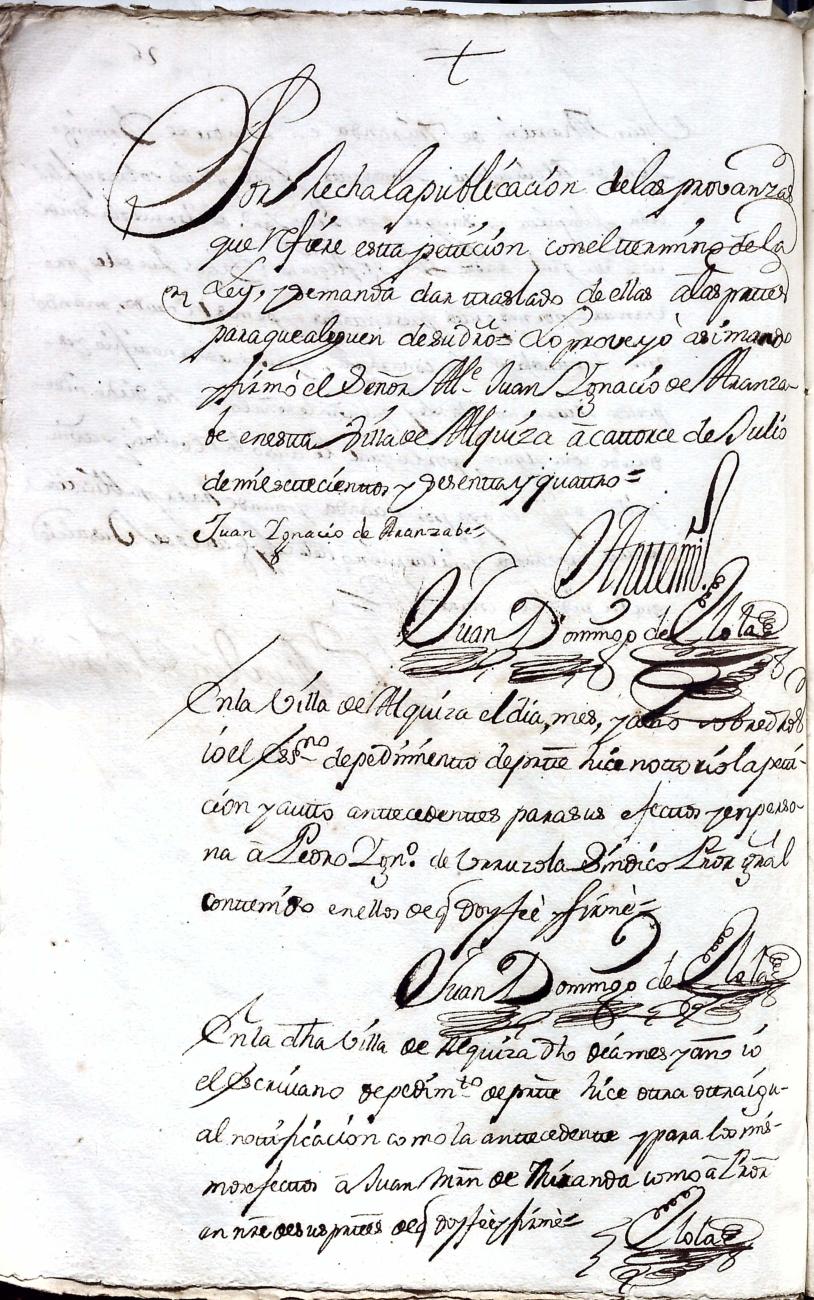 Por hecha la publicación de las provanzas
que refiere esta peticion con el termino de la
Ley, y se manda dar traslado de ellas a las prtes
para que aleguen de su dro= Lo proveyò asi mando
y firmò el Señor Alc.e Juan Ygnacio de Aranza-
be en esta Villa de Alquiza à catorce de Julio
de mil setecientos y sesenta y quattro=
Juan Ygnacio de Aranzabe
Antemi
Juan Domingo de Elola
En la Villa de Alquiza el dia, mes, y año sobre dhos
io el Ess.no de pedimiento de prtte hice nottorio la peti-
ción y autto anttecedentes para sus efectos y en perso-
na à Pedro Ygn.o de Urruzola Sindico Pror gral
conttenido en ellos de q doy fee y firmè=
Juan Domingo de Elola
En la dha Villa de Alquiza dho dia mes y año io
el Escrivano de pedim.to de prtte hice otra igu-
al notificación como la antecedente y para los mis-
mos efectos à Juan Mrn de Miranda como à Pror
en nre de sus prttes de q doy fee y firmè=
Elola